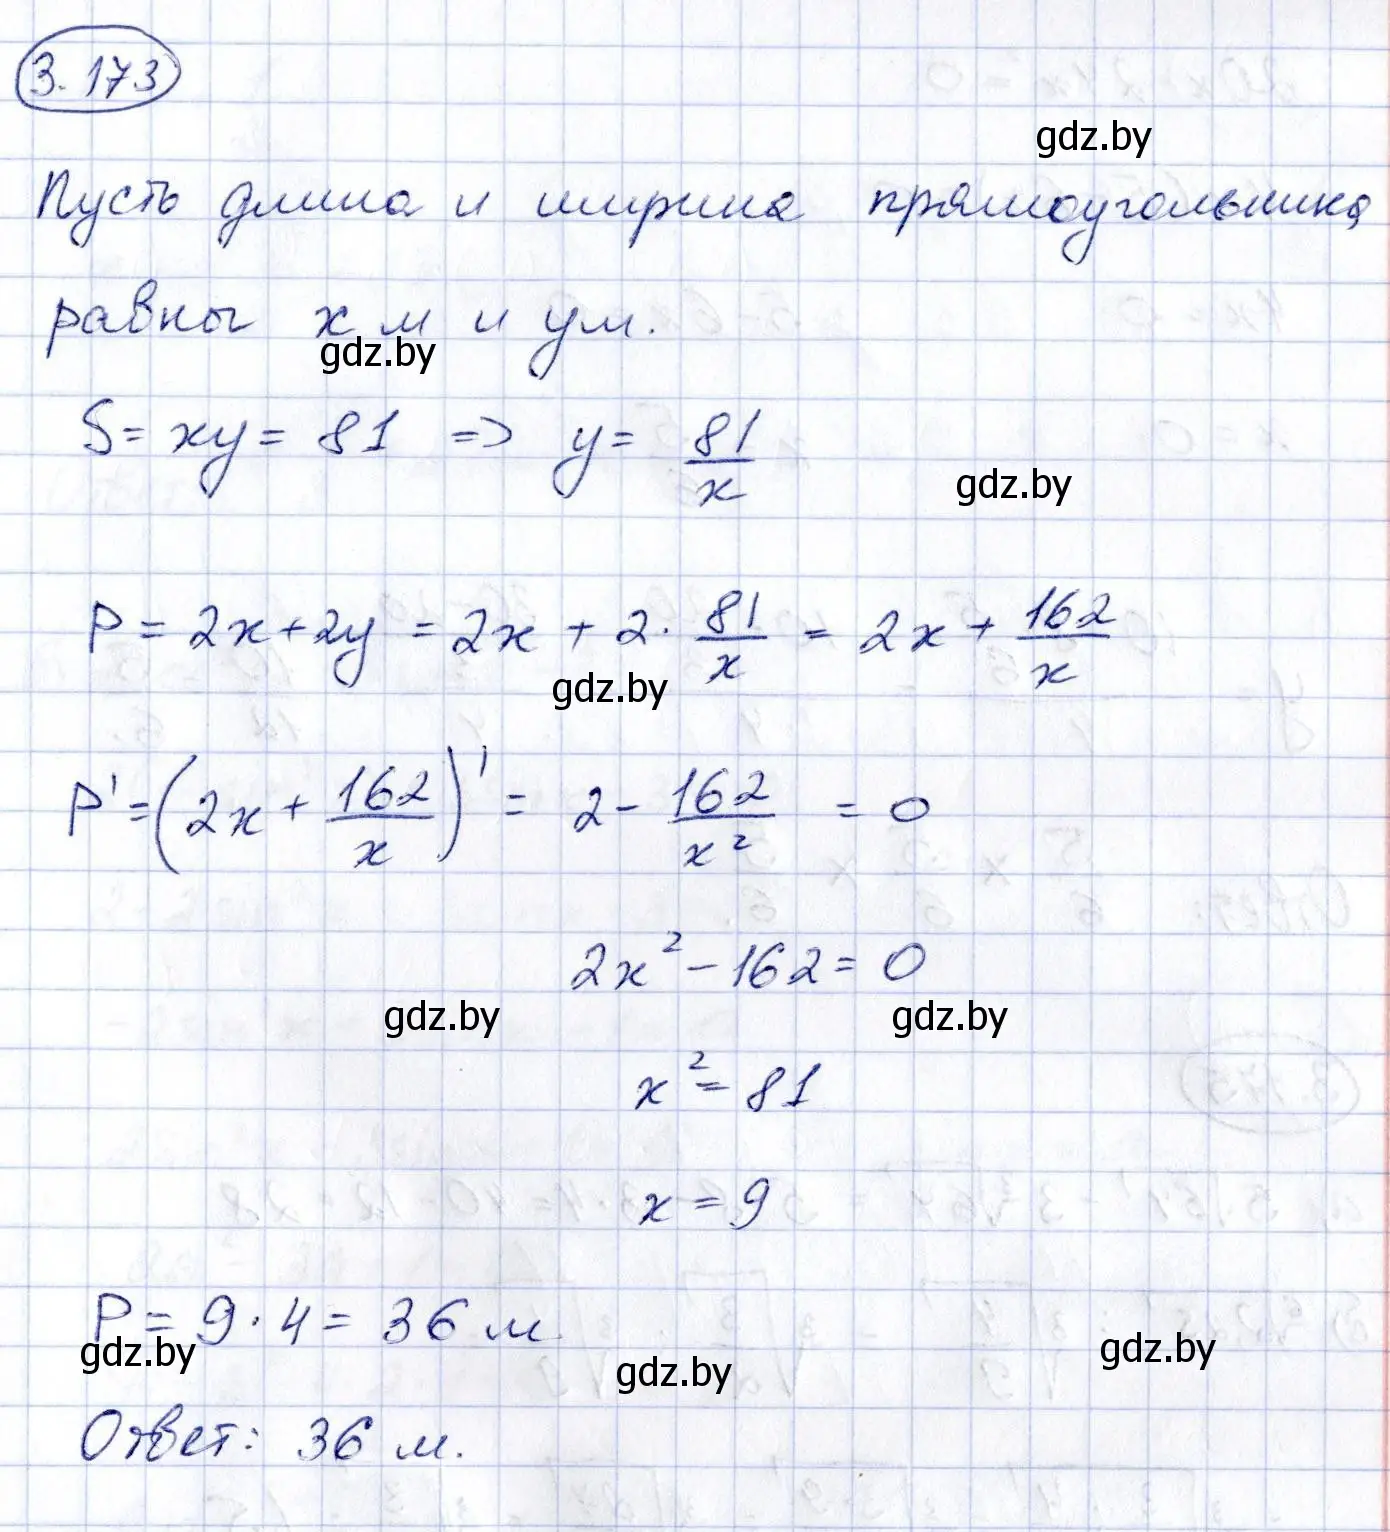 3.173
gdz.by
Пусть длина и ширина прямоугольника
равны x м и y м.
gdz.by
S = xy = 81 => y = 81/x
gdz.by
P = 2x + 2y = 2x + 2 · 81/x = 2x + 162/x
gdz.by
P' = (2x + 162/x)' = 2 - 162/x² = 0
2x² - 162 = 0
gdz.by gdz.by
x² = 81
x = 9
P = 9 · 4 = 36 м
gdz.by gdz.by gdz.by
Ответ: 36 м.